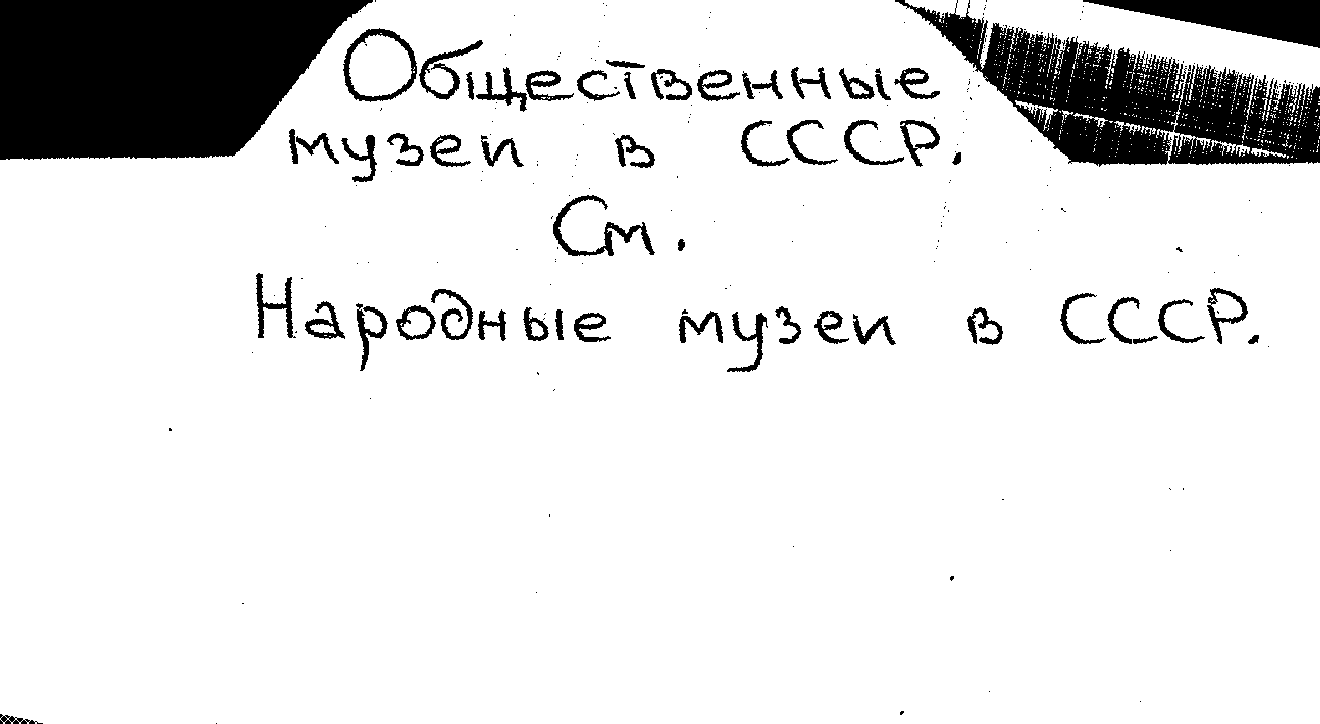 Общественные
музеи в СССР.
См.
Народные музеи в СССР.